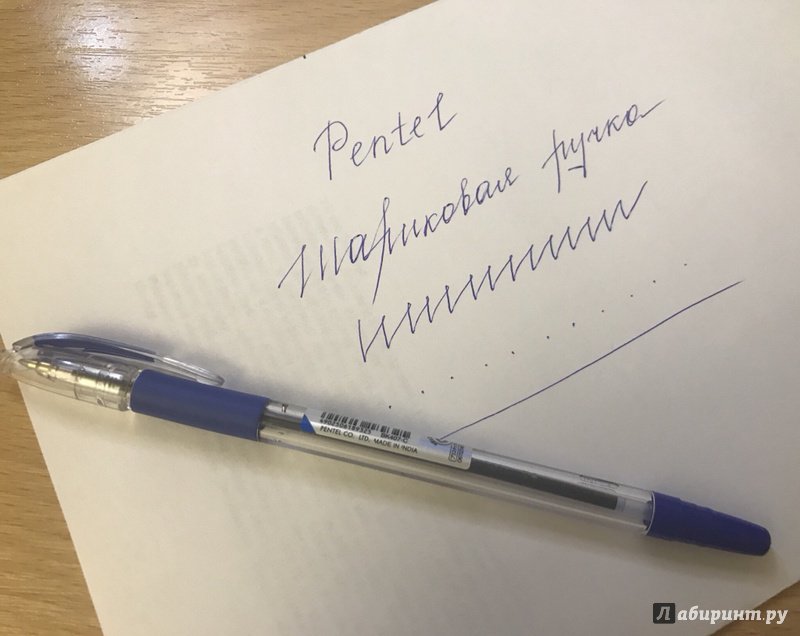 Pentel
Шариковая ручка
PENTEL CO. LTD. MADE IN INDIA
BK407-C
Лабиринт.ру